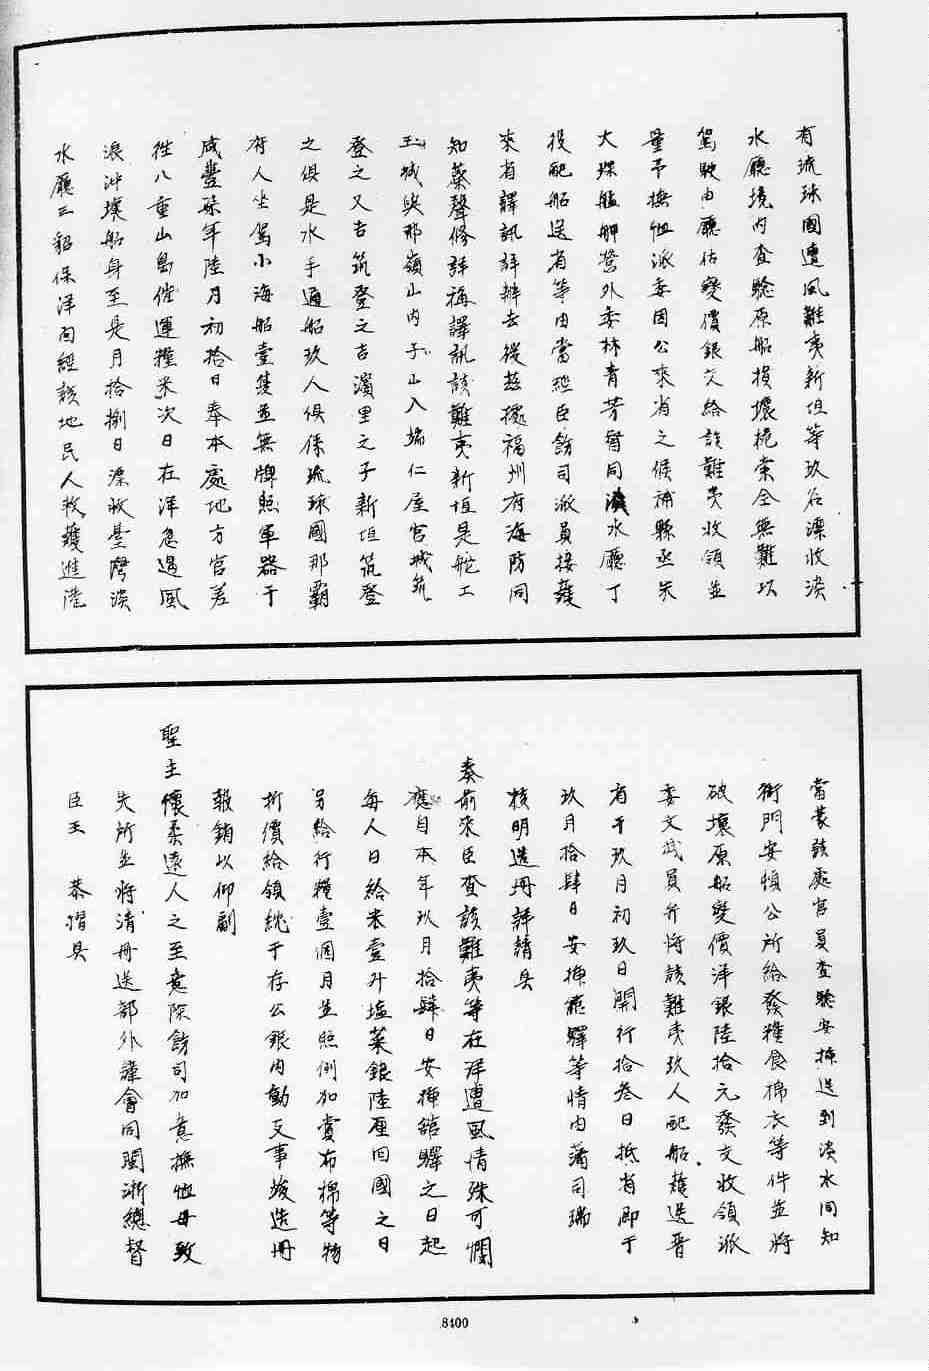 有琉球國遭風難夷新垣等玖名漂收淡
水廳境內查驗原船損壞桅索全無難以
駕駛由廳估變價銀交給該難夷收領並
量予撫恤派委因公來省之候補縣丞朱
大 艋舺營外委林青芳會同淡水廳丁
役配船送省等由當經臣飭司派員接護
來省譯訊詳辦去後茲據福州府海防同
知蔡聲修詳稱譯訊該難夷新垣是舵工
玉城與那嶺山內子山入端仁屋宮城筑
登之又吉筑登之吉濱里之子新垣筑登
之俱是水手通船玖人俱係琉球國那霸
府人坐駕小海船壹隻並無牌照軍器于
咸豐柒年陸月初拾日奉本處地方官差
往八重山島催運糧米次日在洋忽遇風
浪冲壞船身至是月拾捌日漂收臺灣淡
水廳三貂保洋面經該地民人救護進港
當蒙該處官員查驗安撫送到淡水同知
衙門安頓公所給發糧食棉衣等件並將
破壞原船變價洋銀陸拾元發交收領派
委文武員弁將該難夷玖人配船護送晋
省于玖月初玖日開行拾叁日抵省即于
玖月拾肆日安插館驛等情由藩司瑞
核明造冊詳請具
奏前來臣查該難夷等在洋遭風情殊可憫
應自本年玖月拾肆日安插館驛之日起
每人日給米壹升塩菜銀陸厘回國之日
另給行糧壹個月並照例加賞布棉等物
折價給領統于存公銀內動支事竣造冊
報銷以仰副
聖主懷柔遠人之至意除飭司加意撫恤毋致
失所並將清冊送部外謹會同閩浙總督
臣王 恭摺具
8400